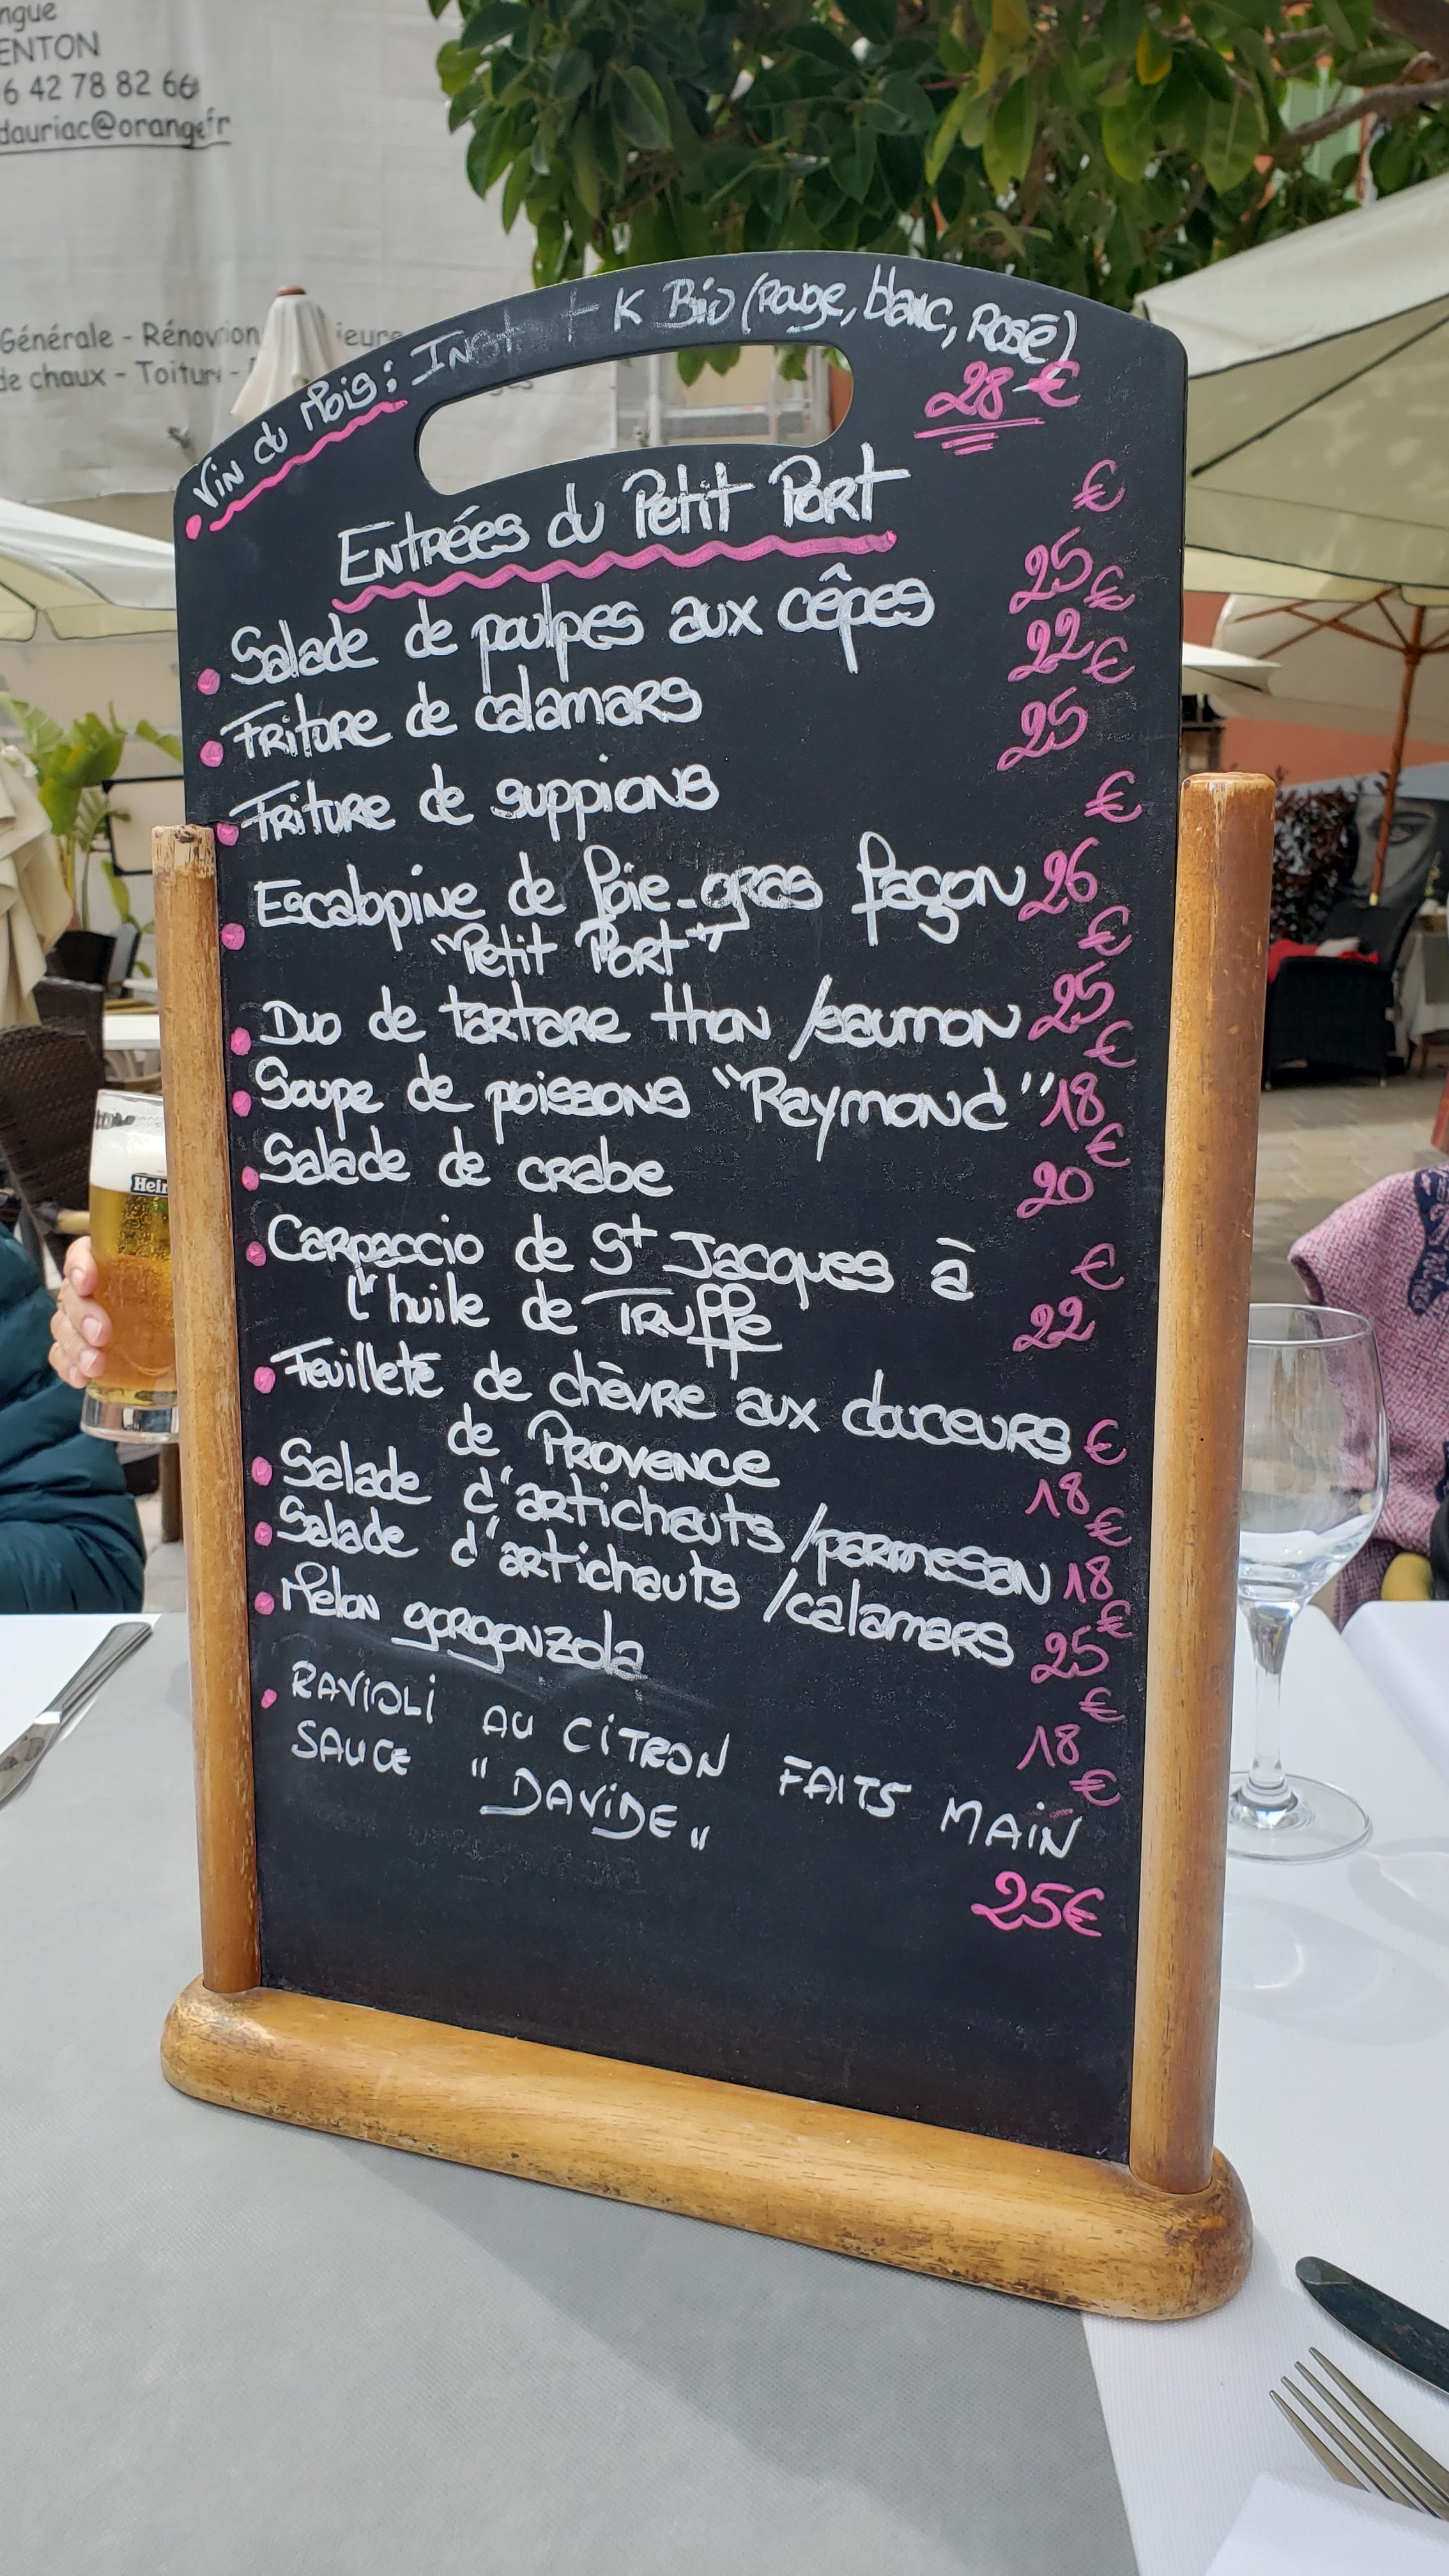 ngue
ENTON
6 42 78 82 66
dauriac@orange.fr
Générale - Rénov ion ieure
de chaux - Toitur -
Vin du Mois: K Bio (rouge, blanc, Rosé)
28 €
Entrées du Petit Port
€
Salade de poulpes aux cêpes 25
€
Friture de calamars 22
€
Friture de suppions 25
€
Escalopine de Foie-gras façon 26
"Petit Port"
€
Duo de tartare thon /saumon 25
€
Soupe de poissons "Raymond" 18
€
Salade de crabe 20
€
Carpaccio de St Jacques à
l'huile de Truffe 22
Feuilleté de chèvre aux douceurs €
de Provence 18
€
Salade d'artichauts /parmesan 18
€
Salade d'artichauts /calamars 25
€
Melon gorgonzola 18
€
RAViOLi AU CiTRON FAITS MAiN
SAUCE "DAViDE"
25€
Hein